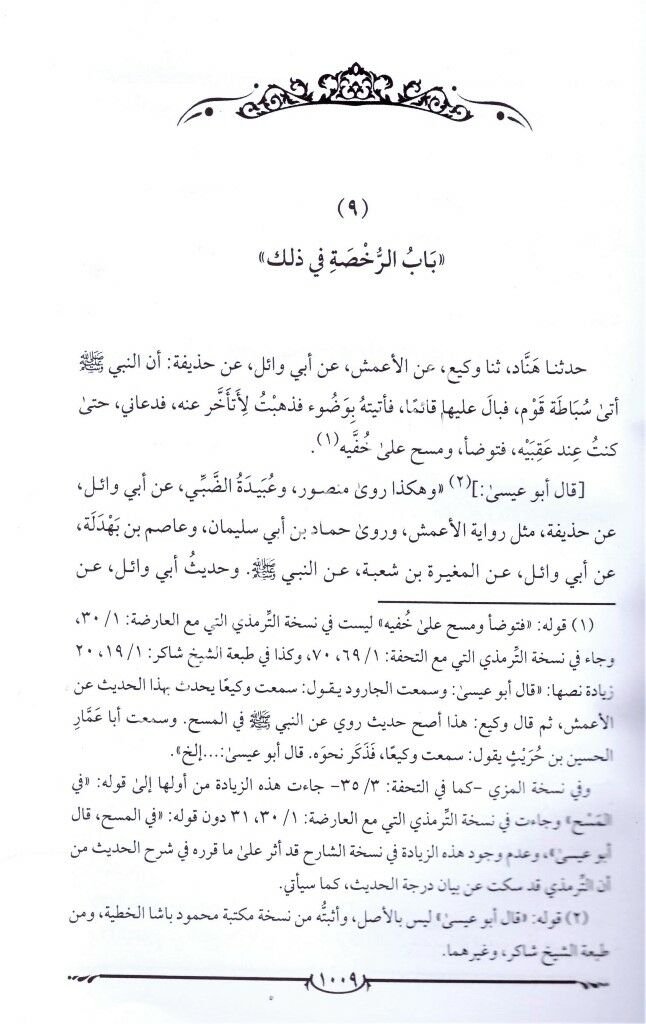 (٩)
«بَابُ الرُّخْصَةِ في ذلك»
حدثنا هَنَّاد، ثنا وكيع، عن الأعمش، عن أبي وائل، عن حذيفة: أن النبي ﷺ
أتىٰ سُبَاطَة قَوْم، فبالَ عليها قائمًا، فأتيتهُ بِوَضُوء فذهبْتُ لِأَتأَخَّر عنه، فدعاني، حتىٰ
كنتُ عِند عَقِبَيْه، فتوضأ، ومسح علىٰ خُفَّيه(١).
[قال أبو عيسىٰ:](٢) «وهكذا روىٰ منصور، وعُبَيدَةُ الضَّبِّي، عن أبي وائل،
عن حذيفة، مثل رواية الأعمش، وروىٰ حماد بن أبي سليمان، وعاصم بن بَهْدَلَة،
عن أبي وائل، عن المغيرة بن شعبة، عن النبي ﷺ. وحديثُ أبي وائل، عن
(١) قوله: «فتوضأ ومسح علىٰ خُفيه» ليست في نسخة التِّرمذي التي مع العارضة: ١/ ٣٠،
وجاء في نسخة التِّرمذي التي مع التحفة: ١/ ٦٩، ٧٠، وكذا في طبعة الشيخ شاكر: ١/ ١٩، ٢٠
زيادة نصها: «قال أبو عيسىٰ: وسمعت الجارود يقول: سمعت وكيعًا يحدث بهذا الحديث عن
الأعمش، ثم قال وكيع: هذا أصح حديث روي عن النبي ﷺ في المسح. وسمعت أبا عَمَّارِ
الحسين بن حُرَيْثٍ يقول: سمعت وكيعًا، فَذَكَر نحوَه. قال أبو عيسىٰ:...إلخ».
وفي نسخة المزي -كما في التحفة: ٣/ ٣٥- جاءت هذه الزيادة من أولها إلىٰ قوله: «في
المَسْح» وجاءت في نسخة التِّرمذي التي مع العارضة: ١/ ٣٠، ٣١ دون قوله: «في المسح، قال
أبو عيسىٰ»، وعدم وجود هذه الزيادة في نسخة الشارح قد أثر علىٰ ما قرره في شرح الحديث من
أن التِّرمذي قد سكت عن بيان درجة الحديث، كما سيأتي.
(٢) قوله: «قال أبو عيسىٰ» ليس بالأصل، وأثبتُّه من نسخة مكتبة محمود باشا الخطية، ومن
طبعة الشيخ شاكر، وغيرهما.
١٠٠٩